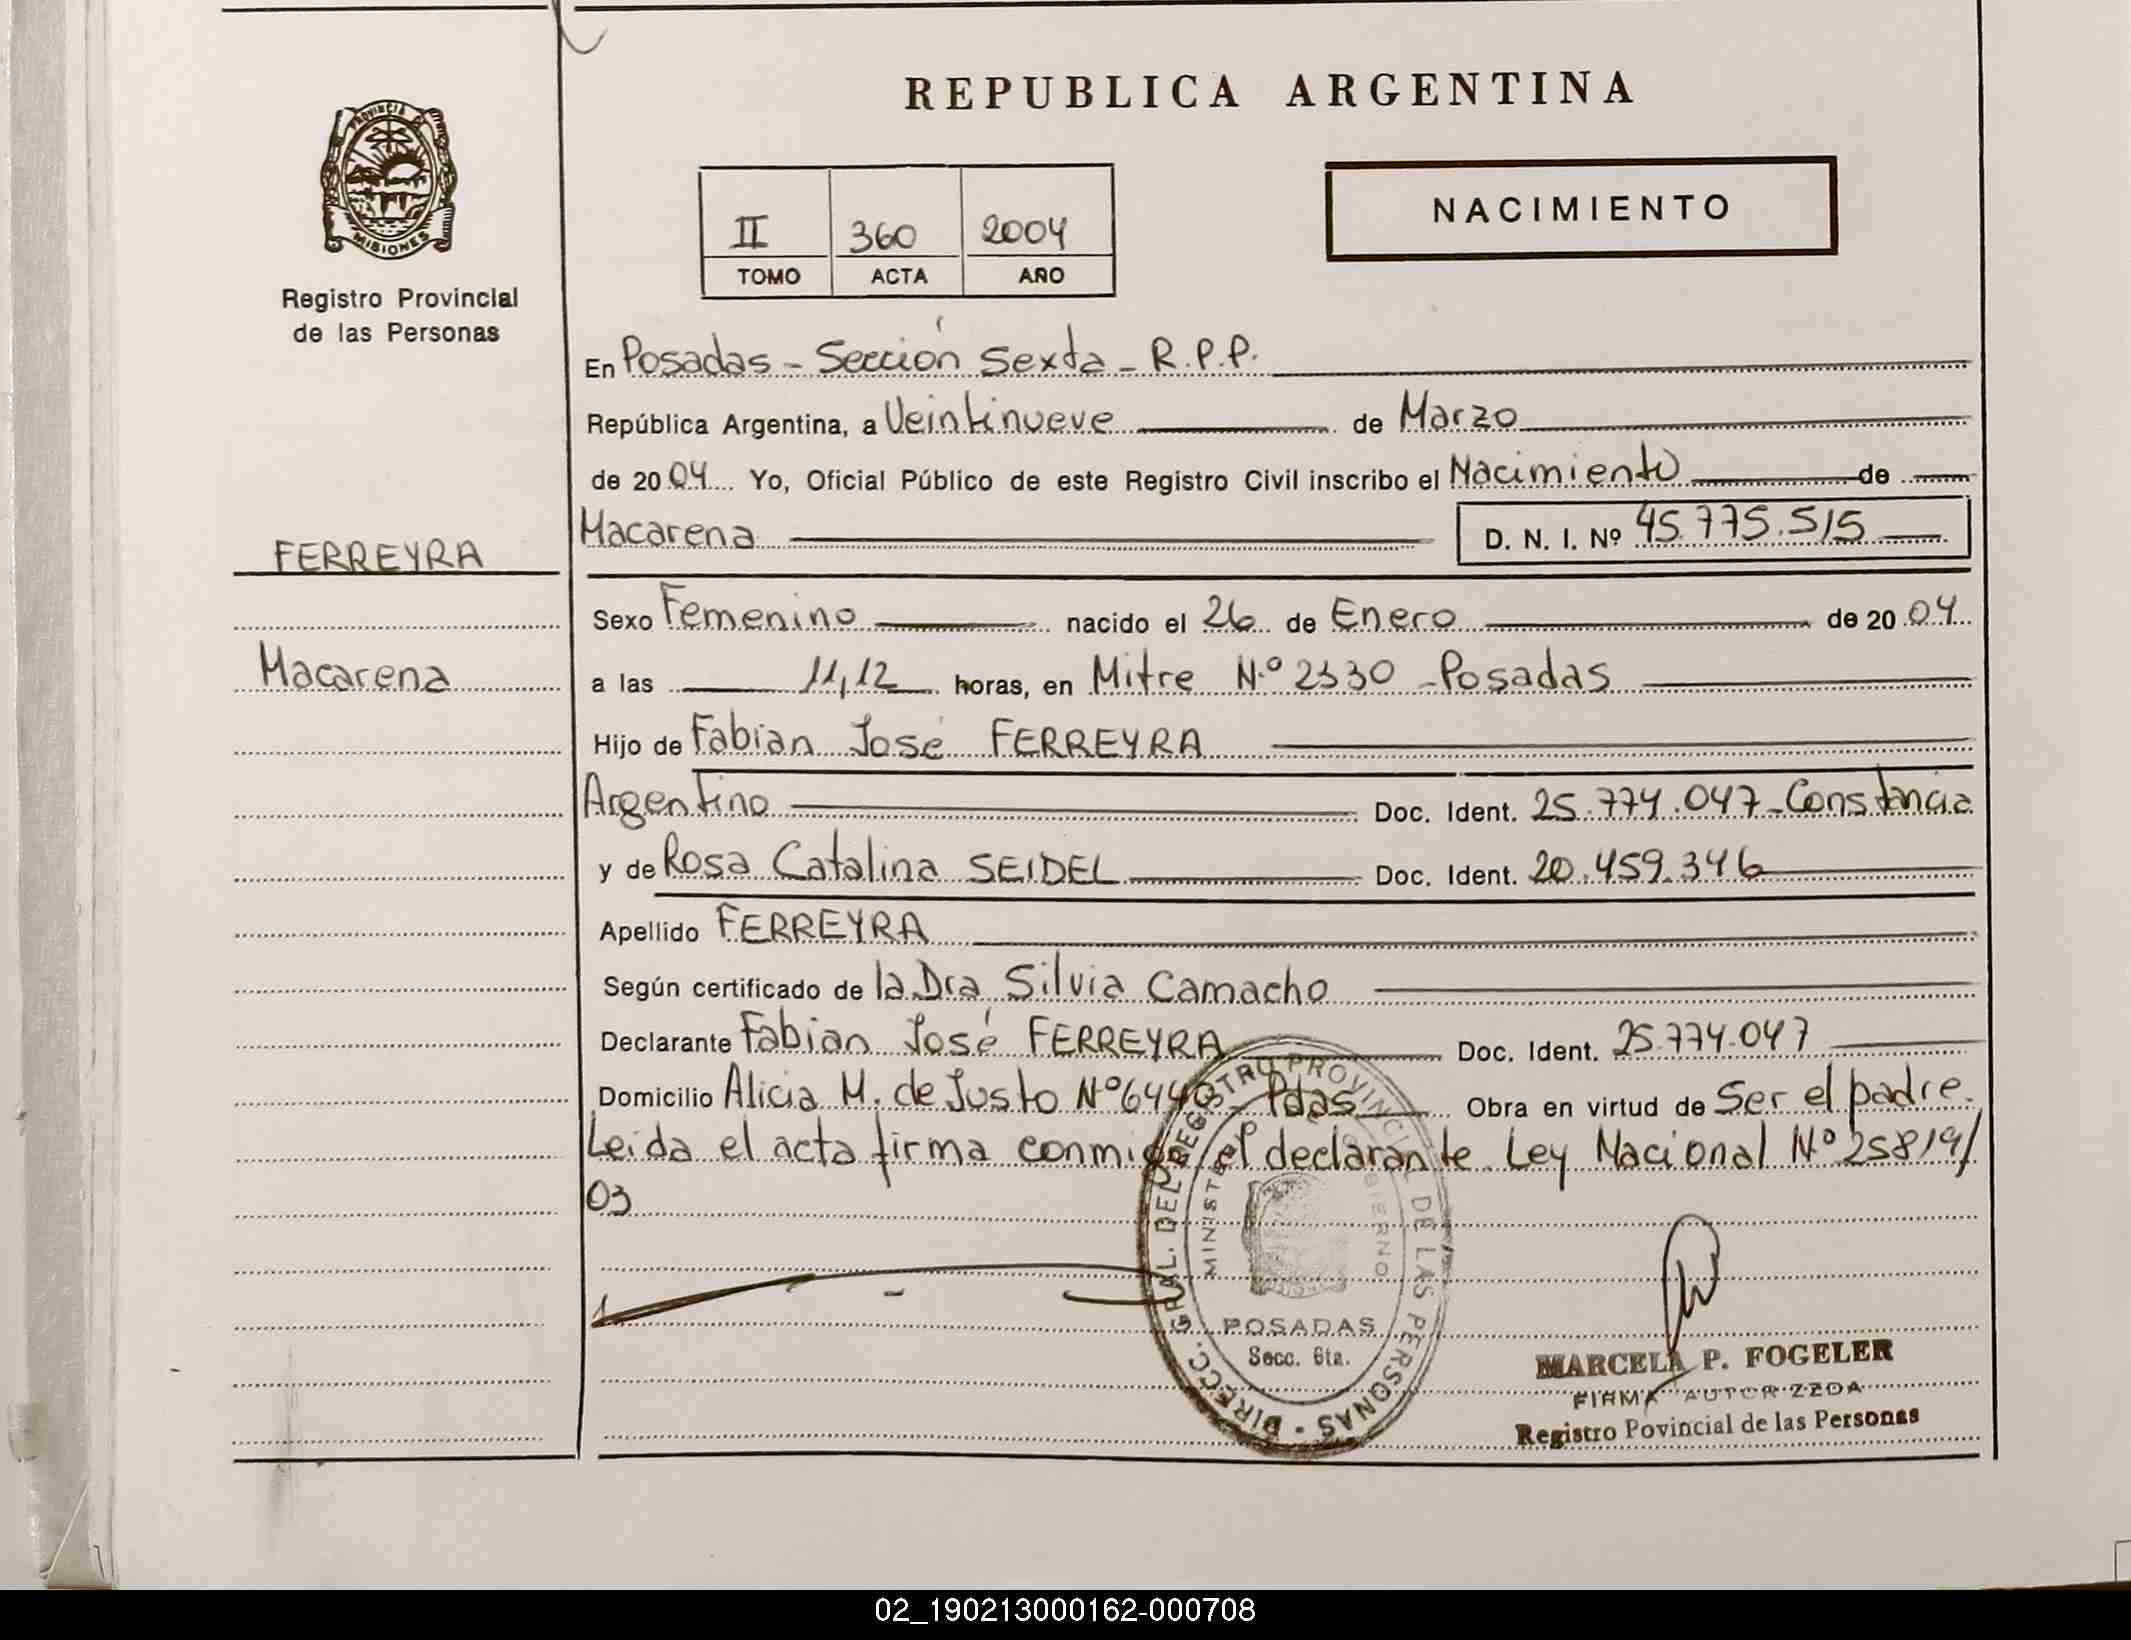 REPUBLICA ARGENTINA
PROVINCIA DE
MISIONES
Registro Provincial
de las Personas
II 360 2004
TOMO ACTA AÑO
NACIMIENTO
En Posadas - Sección Sexta - R.P.P.
República Argentina, a Veintinueve de Marzo
de 2004 Yo, Oficial Público de este Registro Civil inscribo el Nacimiento de
Macarena D. N. I. Nº 45.775.515
FERREYRA
Sexo Femenino nacido el 26 de Enero de 2004
Macarena
a las 11,12 horas, en Mitre N.º 2330 - Posadas
Hijo de Fabian José FERREYRA
Argentino Doc. Ident. 25.774.047 - Constancia
y de Rosa Catalina SEIDEL Doc. Ident. 20.459.346
Apellido FERREYRA
Según certificado de la Dra Silvia Camacho
Declarante Fabian José FERREYRA Doc. Ident. 25.774.047
Domicilio Alicia M. de Justo Nº 6440 - Pdas Obra en virtud de Ser el padre.
Leida el acta firma conmigo el declarante. Ley Nacional Nº 25819/
03
DIRECC. GRAL. DEL REGISTRO PROVINCIAL DE LAS PERSONAS -
MINISTERIO DE GOBIERNO
POSADAS
Secc. 6ta.
MARCELA P. FOGELER
FIRMA AUTORIZZDA
Registro Povincial de las Personas
02_190213000162-000708